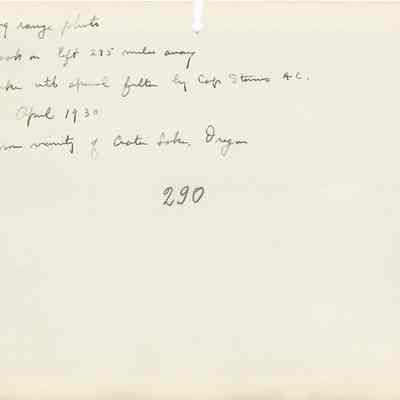 ng range photo
ook on left 235 miles away
ken with special filter by Cap Stevens A.C.
April 1930
from vicinity of Crater Lake, Oregon
290